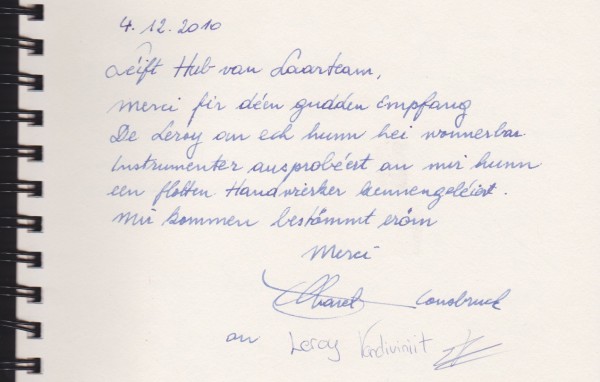 4. 12. 2010
Léift Hub van Laarteam,
Merci fir deen gudden Empfang
De Leroy an ech hunn hei wonnerbar
Instrumenter ausprobéiert an mir hunn
een flotten Handwierker kennengeléiert.
Mir kommen bestëmmt erëm
Merci
Consbruck
an Leroy